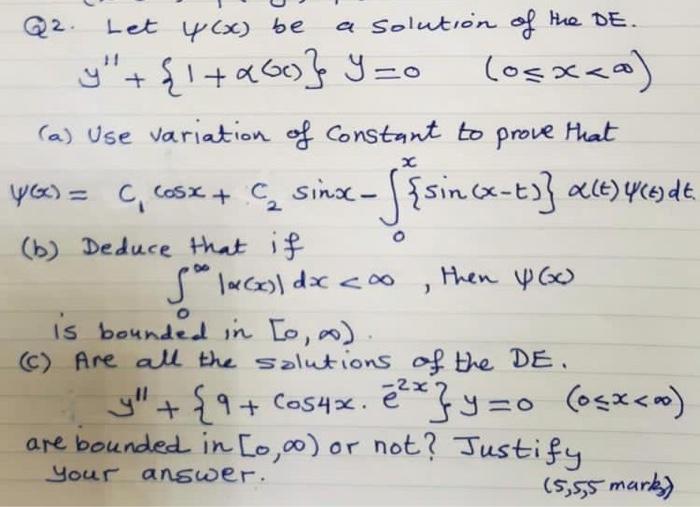 Q2. Let ψ(x) be a solution of the DE.
y'' + {1 + α(x)} y = 0 (0 ≤ x < ∞)
(a) Use variation of Constant to prove that
ψ(x) = C₁ cosx + C₂ sinx - ∫₀ˣ {sin(x-t)} α(t) ψ(t) dt.
(b) Deduce that if
∫₀^∞ |α(x)| dx < ∞, then ψ(x)
is bounded in [0, ∞).
(c) Are all the solutions of the DE.
y'' + {9 + Cos4x. e^-2x} y = 0 (0 ≤ x < ∞)
are bounded in [0, ∞) or not? Justify
your answer.
(5,5,5 marks)